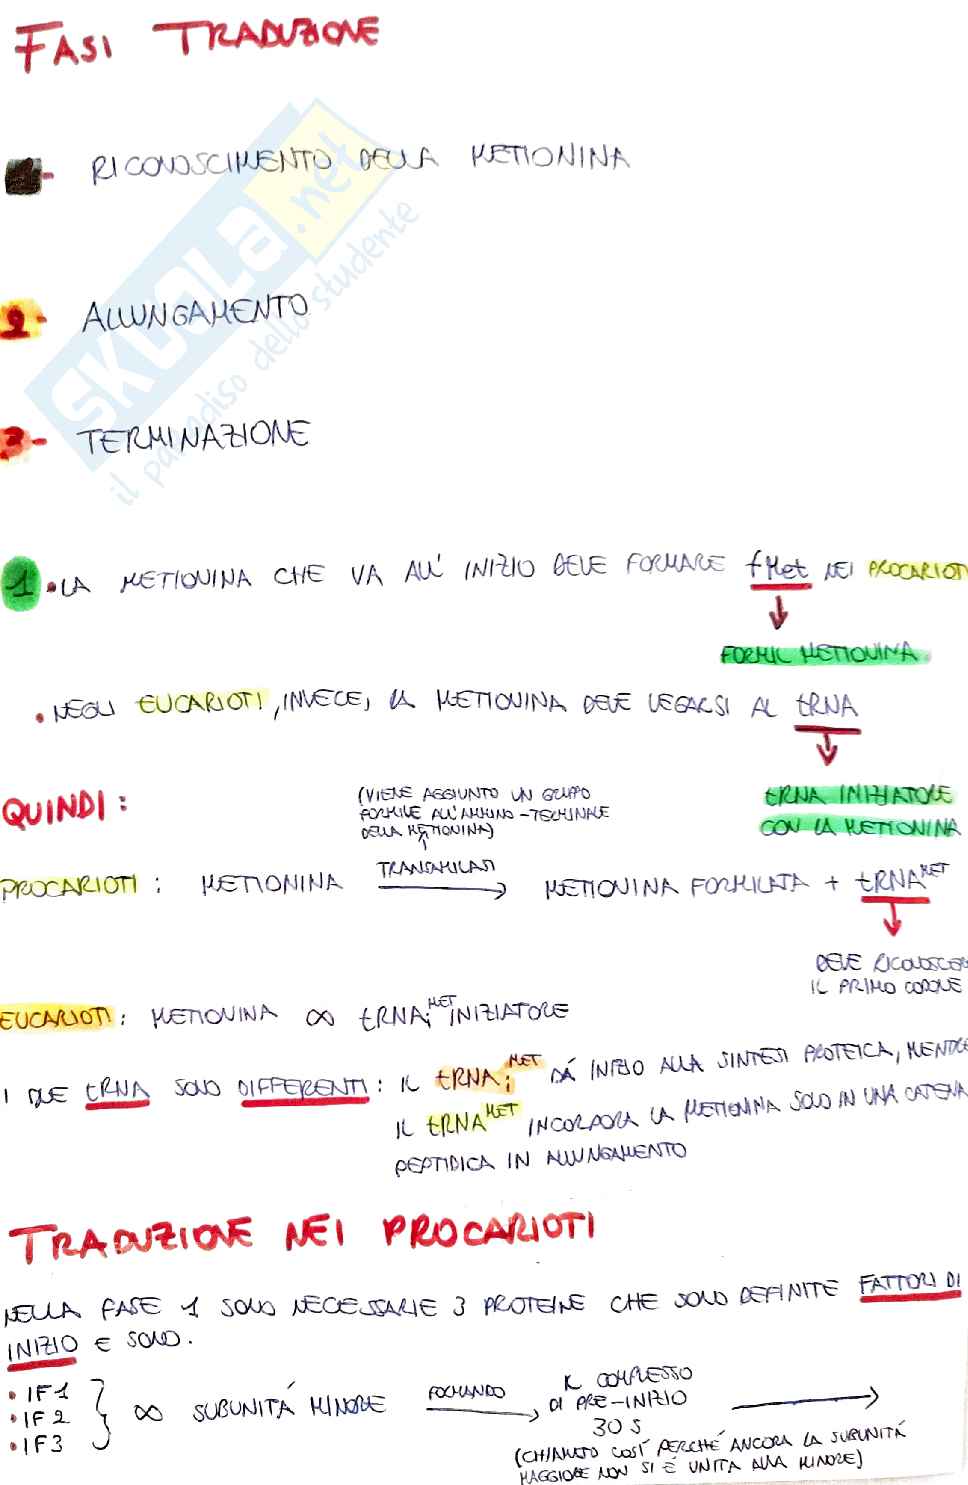 FASI TRADUZIONE
- RICONOSCIMENTO DELLA METIONINA
2- ALLUNGAMENTO
3- TERMINAZIONE
SKUOLA.net
il paradiso dello studente
1 • LA METIONINA CHE VA ALL' INIZIO DEVE FORMARE fMet NEI PROCARIOTI
FORMIL METIONINA.
• NEGLI EUCARIOTI, INVECE, LA METIONINA DEVE LEGARSI AL tRNA
tRNA INIZIATORE
CON LA METIONINA
QUINDI:
(VIENE AGGIUNTO UN GRUPPO
FORMILE ALL'AMMINO-TERMINALE
DELLA METIONINA)
TRANSMILASI
PROCARIOTI: METIONINA → METIONINA FORMILATA + tRNA^MET
DEVE RICONOSCERE
IL PRIMO CODONE
EUCARIOTI: METIONINA ∞ tRNAi^MET INIZIATORE
I DUE tRNA SONO DIFFERENTI: IL tRNAi^MET DÁ INIZIO ALLA SINTESI PROTEICA, MENTRE
IL tRNA^MET INCORPORA LA METIONINA SOLO IN UNA CATENA
PEPTIDICA IN ALLUNGAMENTO
TRADUZIONE NEI PROCARIOTI
NELLA FASE 1 SONO NECESSARIE 3 PROTEINE CHE SONO DEFINITE FATTORI DI
INIZIO E SONO.
• IF1
• IF2
• IF3
∞ SUBUNITÁ MINORE FORMANDO → IL COMPLESSO
DI PRE-INIZIO →
30 S
(CHIAMATO COSÍ PERCHÉ ANCORA LA SUBUNITÁ
MAGGIORE NON SI É UNITA ALLA MINORE)